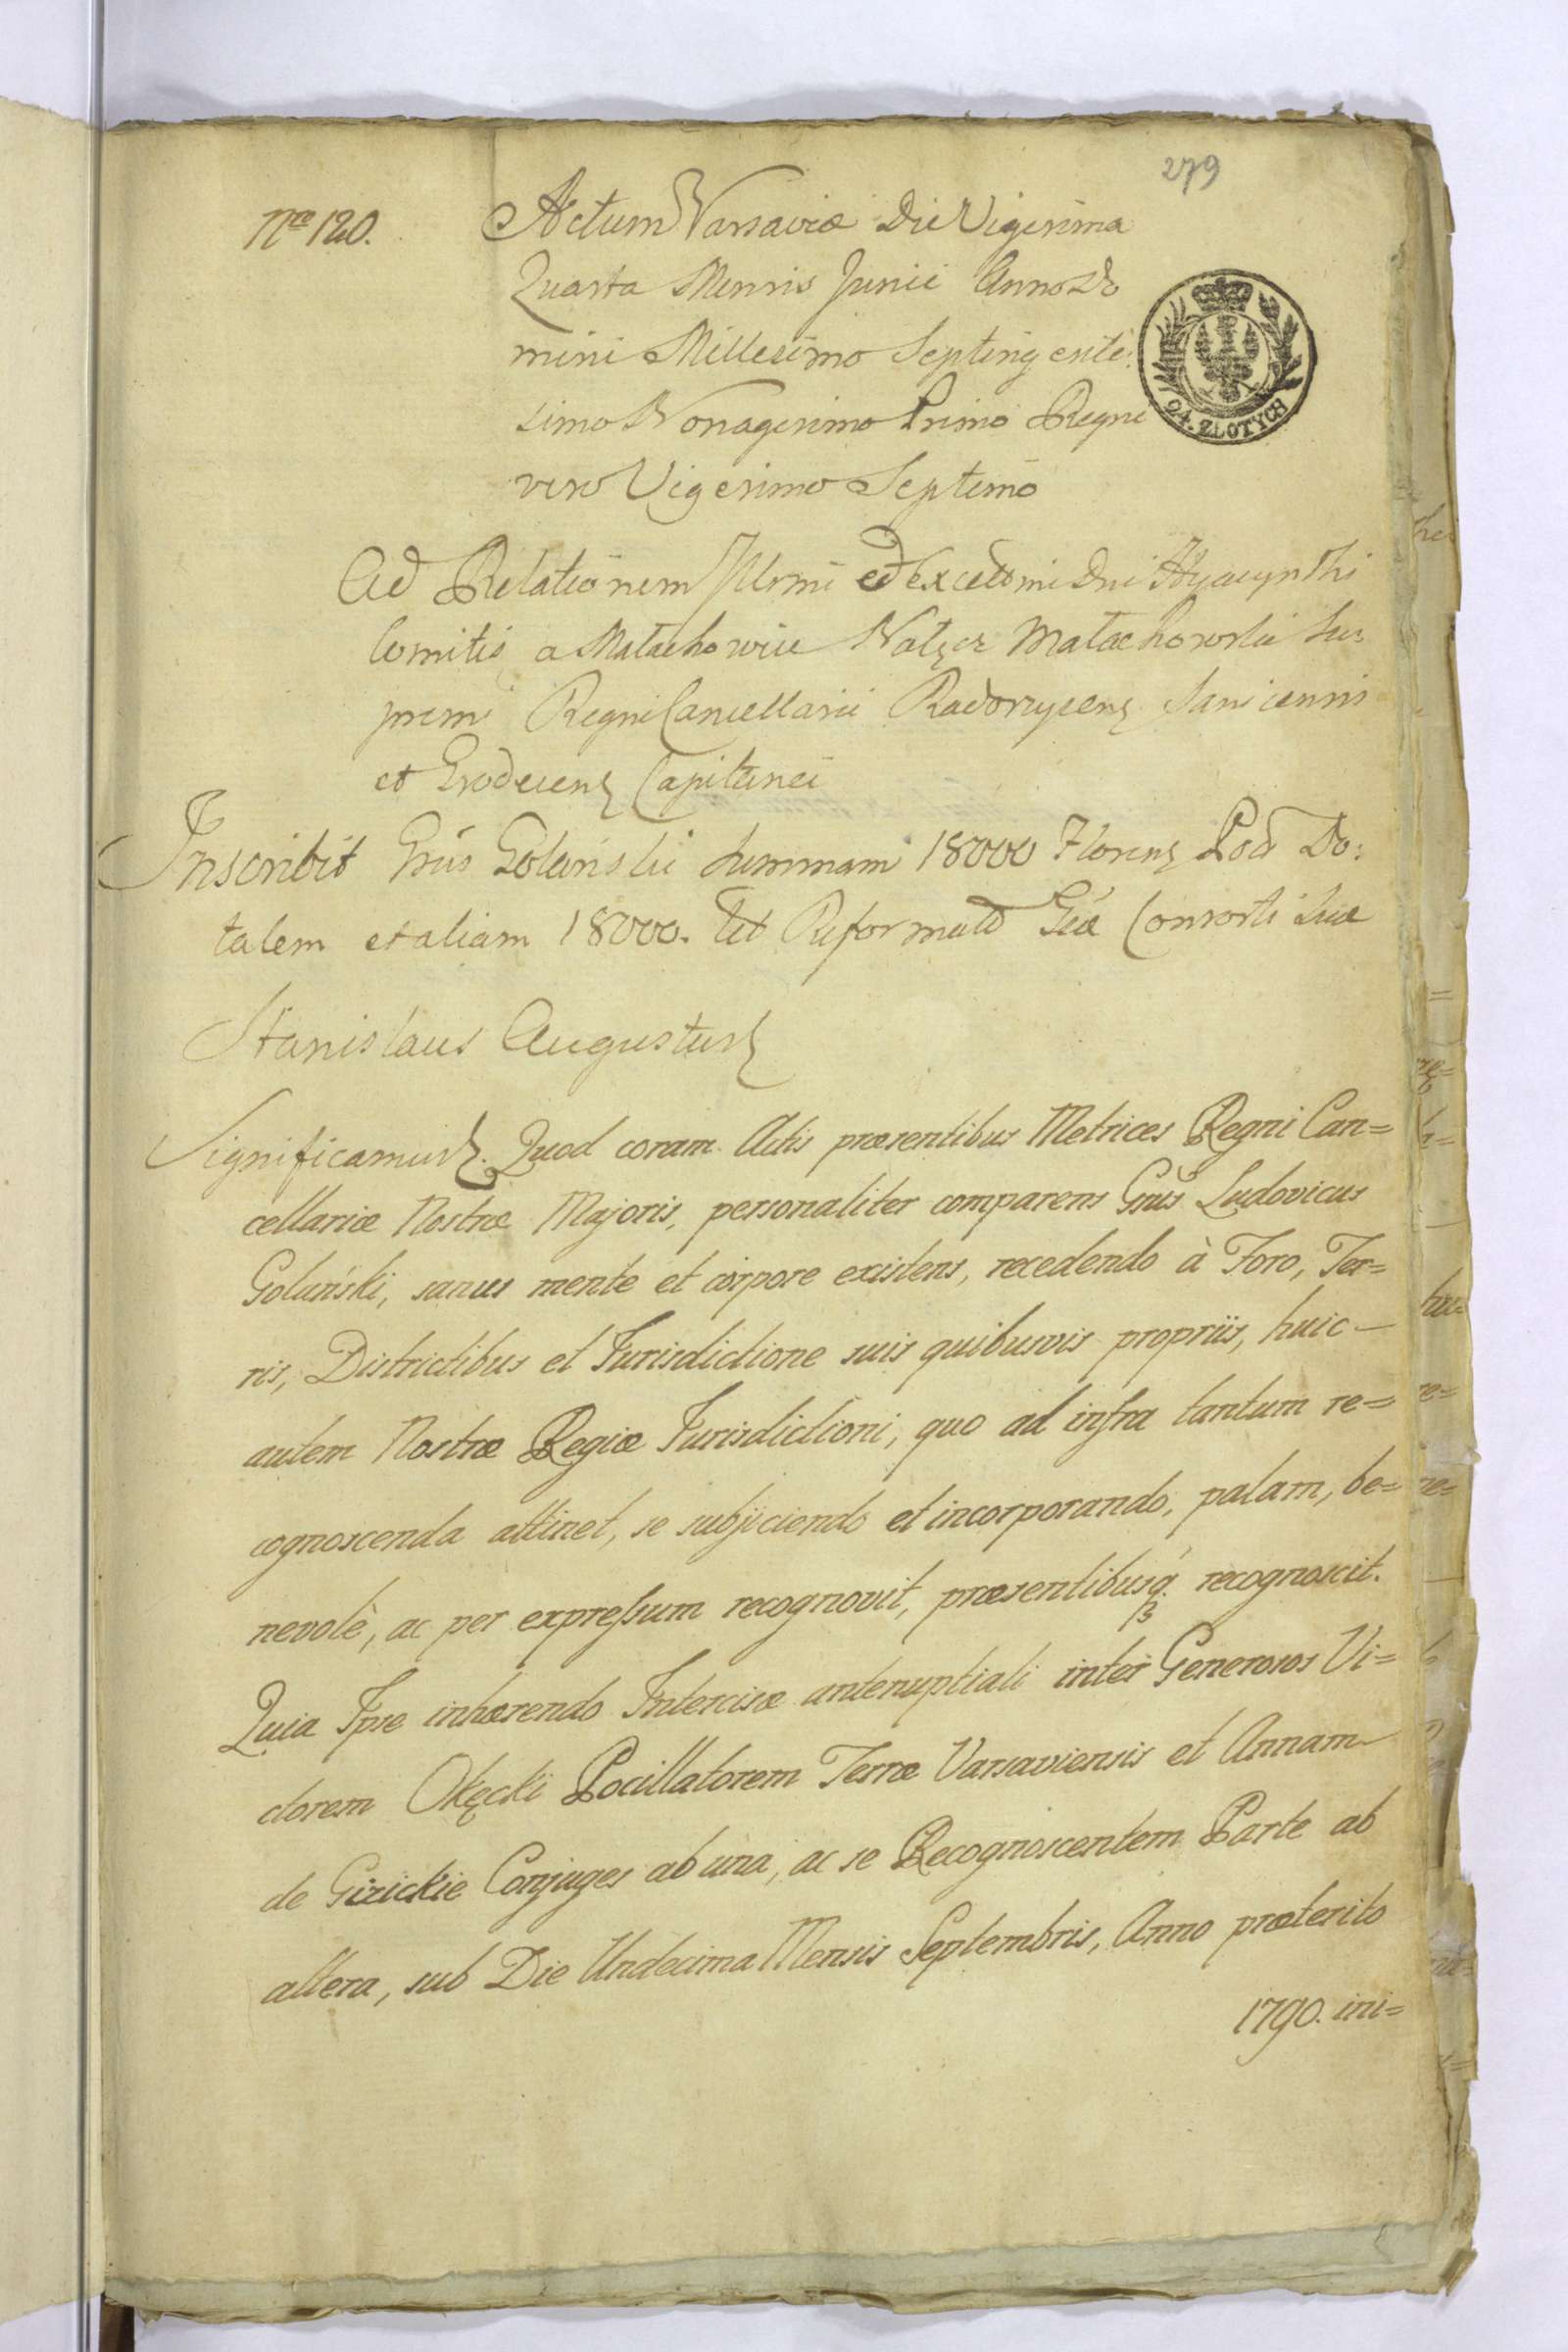 279
Nro 120.
Actum Varsaviæ Die Vigesima
Quarta Mensis Junii Anno Do
mini Millesimo Septingente:
simo Nonagesimo Primo Regni
vero Vigesimo Septimo
24. ZŁOTYCH
Ad Relationem Illrmi et Excellmi Dni Hyacynthi
Comitis a Małachowice Nałęcz Małachowski Su:
premi Regni Cancellarii Radoszycens Sanicensis
et Grodecens Capitanei
Inscribit Gnus Golański Summam 18000 Floren Pol Do:
talem et aliam 18000. Tit Reformatð Gæ Consorti Suæ
Stanislaus Augustus
Significamus. Quod coram Actis præsentibus Metrices Regni Can=
cellariæ Nostræ Majoris, personaliter comparens Gnus Ludovicus
Golański, sanus mente et corpore existens, recedendo à Foro, Ter=
ris, Districtibus et Jurisdictione suis quibusvis propriis, huic
autem Nostræ Regiæ Jurisdictioni, quo ad infra tantum re=
cognoscenda attinet, se subjiciendo et incorporando, palam, be=
nevolè, ac per expressum recognovit, præsentibusq. recognoscit.
Quia Ipse inhærendo Intercisæ antenuptiali inter Generosos Vi=
ctorem Okęcki Pocillatorem Terræ Varsaviensis et Annam
de Gizickie Conjuges ab una, ac se Recognoscentem Parte ab
altera, sub Die Undecima Mensis Septembris, Anno præterito
1790. ini=